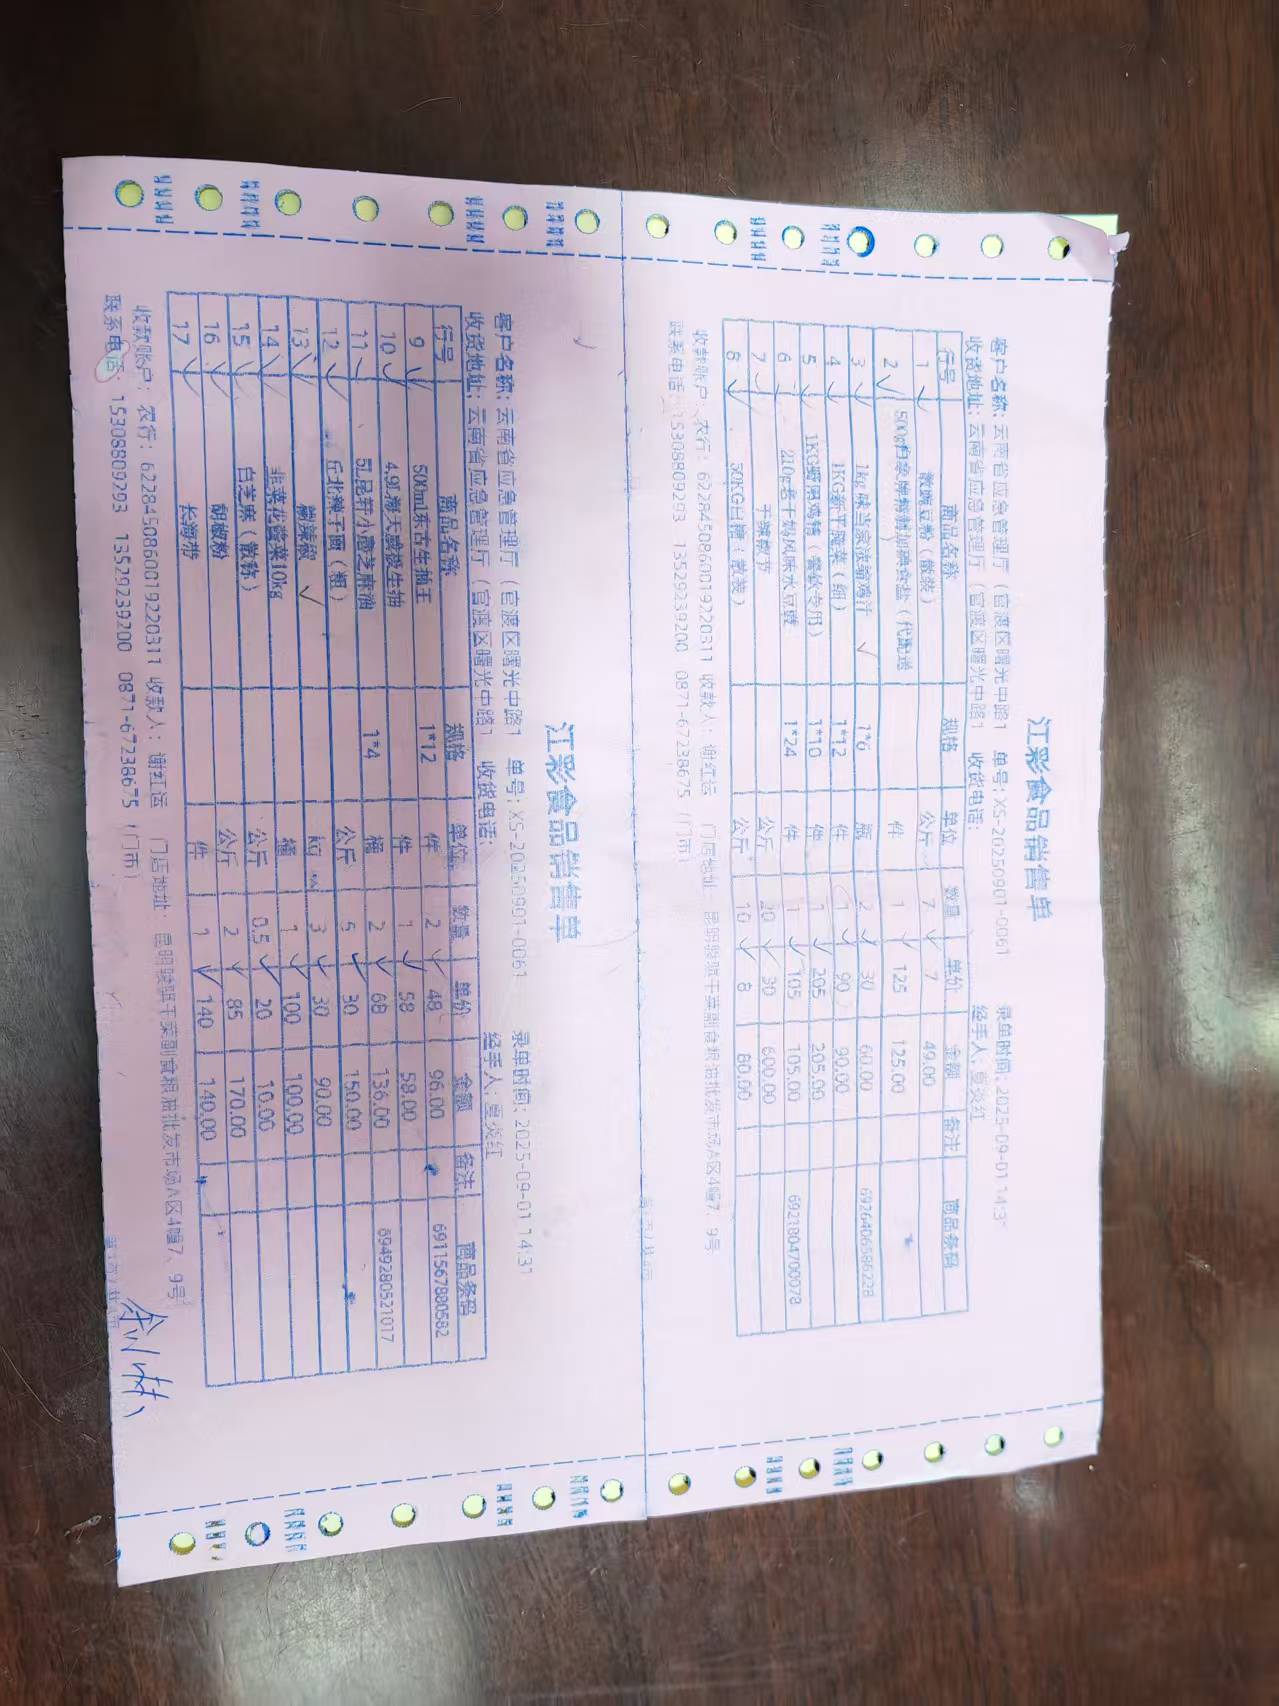 江彩食品销售单
客户名称: 云南省应急管理厅（官渡区曙光中路1 单号: XS-20250901-0061 录单时间: 2025-09-01 14:3
收货地址: 云南省应急管理厅（官渡区曙光中路1 收货电话: 经手人: 夏炎红
行号 商品名称 规格 单位 数量 单价 金额 备注 商品条码
1 豌豆粉（散装） 公斤 7 7 49.00
2 500g白象牌精制加碘食盐（代配送 件 1 125 125.00
3 1kg味当家浓缩鸡汁 1*6 瓶 2 30 60.00 6926406586228
4 1KG新平腌菜（细） 1*12 件 1 90 90.00
5 1KG 鸡精（餐饮专用） 1*10 件 1 205 205.00
6 210g老干妈风味水豆豉 1*24 件 1 105 105.00 6921804700078
7 干辣椒节 公斤 20 30 600.00
8 50KG白糖（散装） 公斤 10 8 80.00
收款账户: 农行: 6228450860019220311 收款人: 谢红运 门店地址: 昆明骏骐干菜副食粮油批发市场A区4幢7、9号
联系电话: 15308809293 13529239200 0871-67238675（门市）
江彩食品销售单
客户名称: 云南省应急管理厅（官渡区曙光中路1 单号: XS-20250901-0061 录单时间: 2025-09-01 14:31
收货地址: 云南省应急管理厅（官渡区曙光中路1 收货电话: 经手人: 夏炎红
行号 商品名称 规格 单位 数量 单价 金额 备注 商品条码
9 500ml东古生抽王 1*12 件 2 48 96.00 6911567880582
10 4.9L海天威极生抽 件 1 58 58.00
11 5L昆轩小磨芝麻油 1*4 桶 2 68 136.00 6949280521017
12 丘北辣子面（粗） 公斤 5 30 150.00
13 辣椒 kg 3 30 90.00
14 韭菜花 菜10kg 桶 1 100 100.00
15 白芝麻（散称） 公斤 0.5 20 10.00
16 胡椒粉 公斤 2 85 170.00
17 长海带 件 1 140 140.00
收款账户: 农行: 6228450860019220311 收款人: 谢红运 门店地址: 昆明骏骐干菜副食粮油批发市场A区4幢7、9号
联系电话: 15308809293 13529239200 0871-67238675（门市）